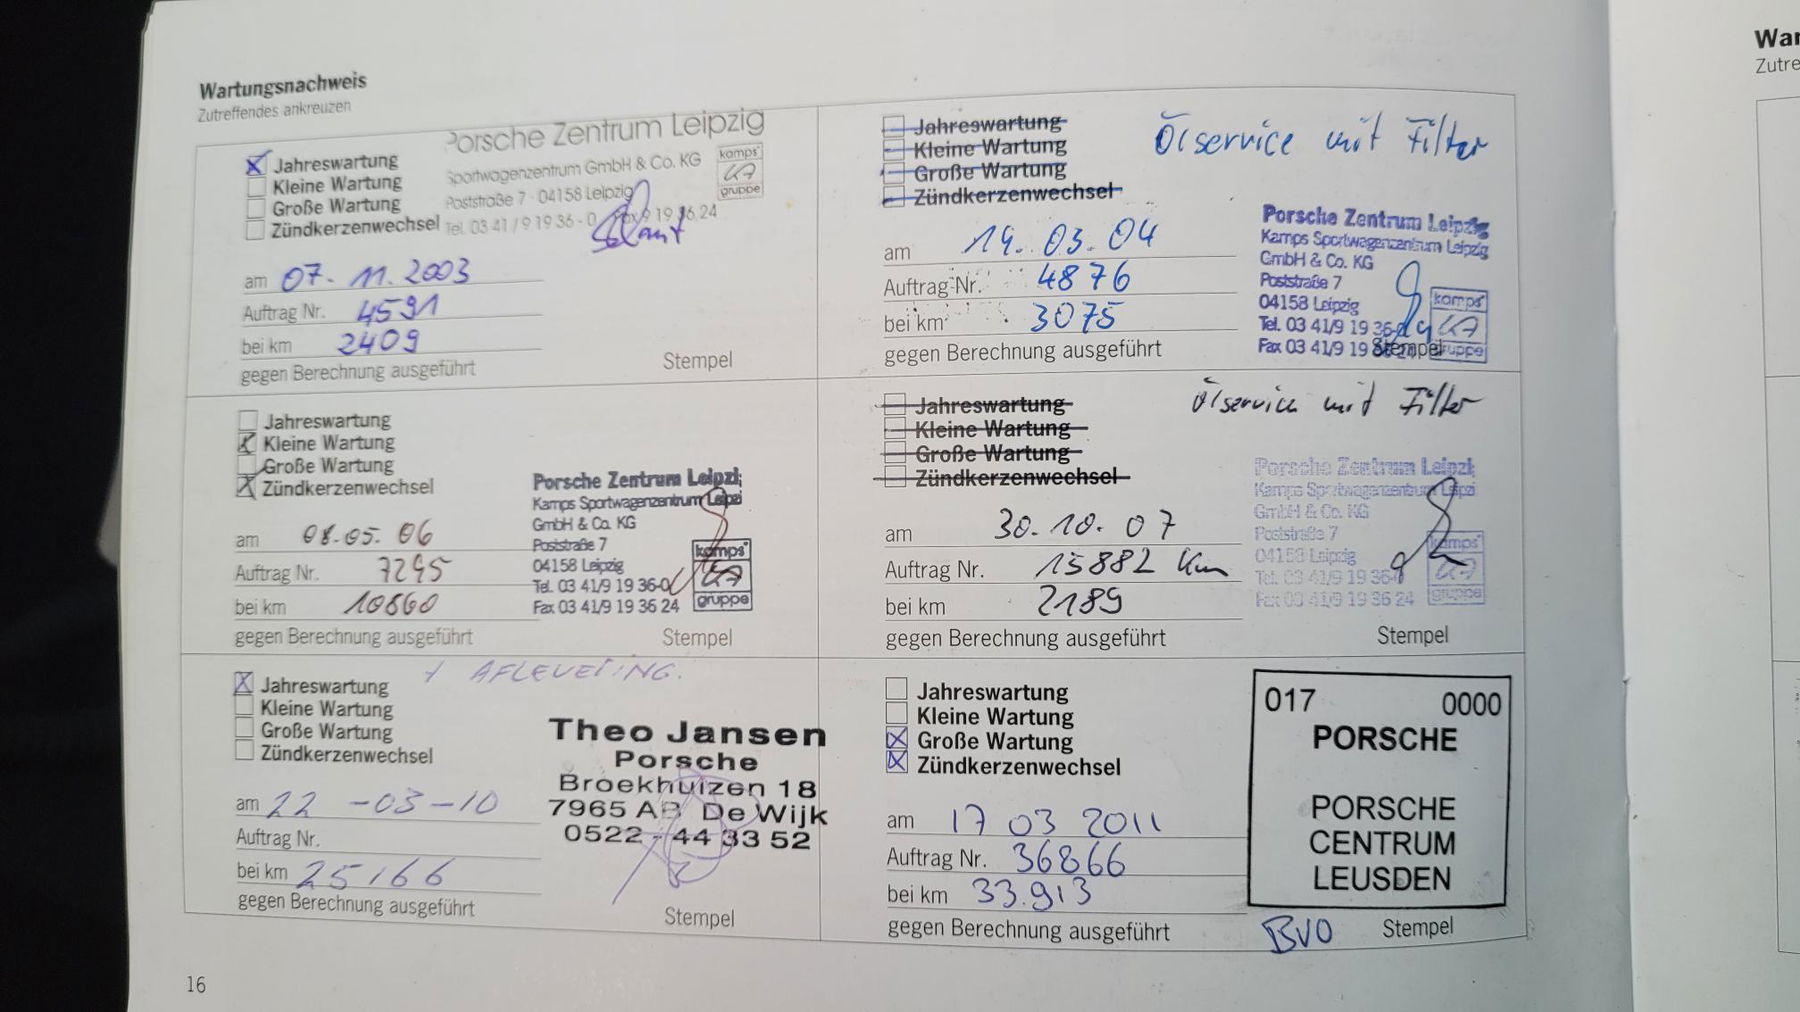 Wartungsnachweis
Zutreffendes ankreuzen
Jahreswartung
Kleine Wartung
Große Wartung
Zündkerzenwechsel
Porsche Zentrum Leipzig
Sportwagenzentrum GmbH & Co. KG
Poststraße 7 · 04158 Leipzig
Tel. 03 41 / 9 19 36 - 0 Fax 9 19 36 24
kamps
gruppe
am 07. 11. 2003
Auftrag Nr. 4591
bei km 2409
gegen Berechnung ausgeführt
Stempel
Jahreswartung
Kleine Wartung
Große Wartung
Zündkerzenwechsel
Ölservice mit Filter
am 19. 03. 04
Auftrag-Nr. 4876
bei km 3075
gegen Berechnung ausgeführt
Porsche Zentrum Leipzig
Kamps Sportwagenzentrum Leipzig
GmbH & Co. KG
Poststraße 7
04158 Leipzig
Tel. 03 41/9 19 36-0
Fax 03 41/9 19 36 24
kamps
gruppe
Stempel
Jahreswartung
Kleine Wartung
Große Wartung
Zündkerzenwechsel
am 08.05. 06
Auftrag Nr. 7295
bei km 10860
gegen Berechnung ausgeführt
Porsche Zentrum Leipzi
Kamps Sportwagenzentrum Leipzi
GmbH & Co. KG
Poststraße 7
04158 Leipzig
Tel. 03 41/9 19 36-0
Fax 03 41/9 19 36 24
kamps
gruppe
Stempel
Jahreswartung
Kleine Wartung
Große Wartung
Zündkerzenwechsel
Ölservice mit Filter
am 30. 10. 07
Auftrag Nr. 15882 Km
bei km 2189
gegen Berechnung ausgeführt
Porsche Zentrum Leipzi
Kamps Sportwagenzentrum Leipzi
GmbH & Co. KG
Poststraße 7
04158 Leipzig
Tel. 03 41/9 19 36-0
Fax 03 41/9 19 36 24
kamps
gruppe
Stempel
+ AFLEVERING.
Jahreswartung
Kleine Wartung
Große Wartung
Zündkerzenwechsel
am 22 -03-10
Auftrag Nr.
bei km 25166
gegen Berechnung ausgeführt
Theo Jansen
Porsche
Broekhuizen 18
7965 AB De Wijk
0522 - 44 33 52
Stempel
Jahreswartung
Kleine Wartung
Große Wartung
Zündkerzenwechsel
am 17 03 2011
Auftrag Nr. 36866
bei km 33.913
gegen Berechnung ausgeführt
017 0000
PORSCHE
PORSCHE
CENTRUM
LEUSDEN
BVO
Stempel
16
War
Zutre